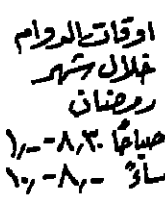 اوقات الدوام
خلال شهر
رمضان
صباحًا ٨,٣٠ - ١,٠٠
ساءً ٨,٠٠ - ١٠,٠٠